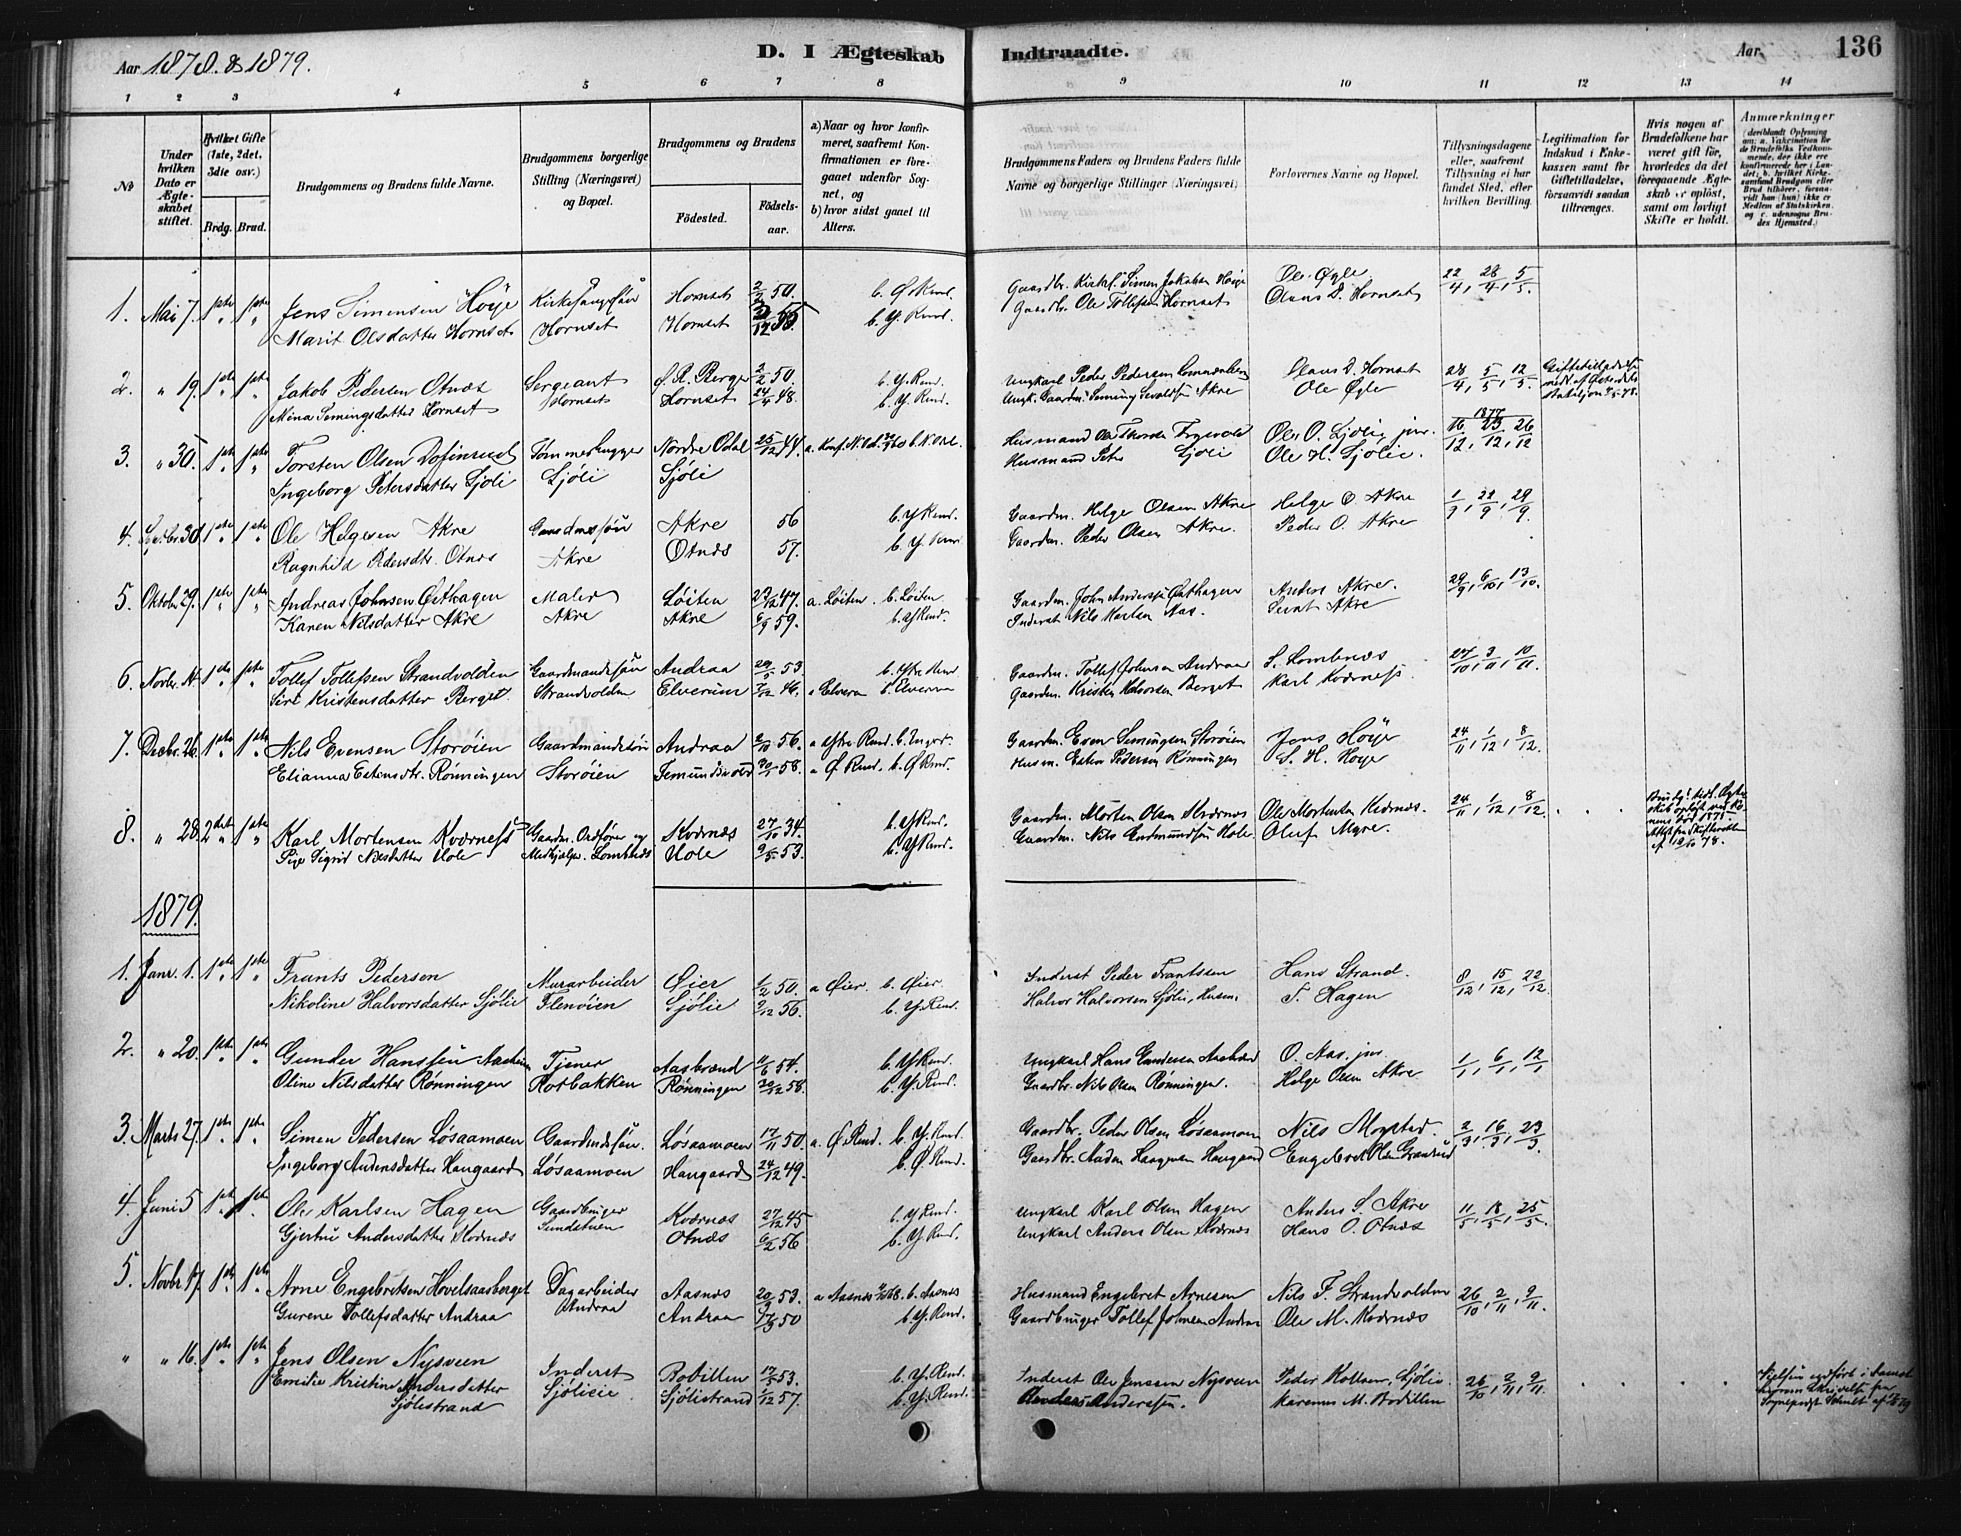 Aar 1878 & 1879.
D. I Ægteskab Indtraadte.
Aar
136
1 2 3 4 5 6 7 8 9 10 11 12 13 14
No
Under hvilken Dato er Ægteskabet stiftet.
Hvilket Gifte (1ste, 2det, 3die osv.)
Brdg. Brud.
Brudgommens og Brudens fulde Navne.
Brudgommens borgerlige Stilling (Næringsvei) og Bopæl.
Brudgommens og Brudens
Fødested. Fødselsaar.
a) Naar og hvor konfirmeret, saafremt Konfirmationen er foregaaet udenfor Sognet, og
b) hvor sidst gaaet til Alters.
Brudgommens Faders og Brudens Faders fulde Navne og borgerlige Stillinger (Næringsvei)
Forlovernes Navne og Bopæl.
Tillysningsdagene eller, saafremt Tillysning ei har fundet Sted, efter hvilken Bevilling.
Legitimation for Indskud i Enkekassen samt for Giftetilladelse, forsaavidt saadan tiltrænges.
Hvis nogen af Brudefolkene har været gift før, hvorledes da det foregaaende Ægteskab er opløst, samt om lovligt Skifte er holdt.
Anmærkninger
(deriblandt Oplysning om: a. Vakcination for de Brudefolks Vedkommende, der ikke ere konfirmerede her i Landet; b. hvilket Kirkesamfund Brudgom eller Brud tilhører, forsaavidt han (hun) ikke er Medlem af Statskirken, og c. udensogns Brudes Hjemsted.)
1. Mai 7. 1ste 1ste Jens Simensen Höye Kirkesangersön Hornset 2/2 50. b. Ø Rend. Gaardbr. Kirkes. Simen Jakobsen Höye Ole Øgle 22/4, 28/4, 5/5.
" " Marit Olsdatter Hornset Hornset Hornset b. Y. Rend. Gaardbr. Ole Tollefsen Hornset Olaus P. Hornset
2. " 19. 1ste 1ste Jakob Pedersen Otnæs Sergeant Berger 2/2 50. b. Y. Rend. Ungkarl Peder Pedersen Olaus P. Hornset 28/4, 5/5, 12/5.
" " Mina Semingsdatter Hornset Hornset Hornset 24/4 48. b. Y. Rend. Seming Akre Ole Øgle
3. " 30. 1ste 1ste Torsten Olsen Dofinrud Tömmerhugger Nordre Odal 25/12 44. a. Konf. N. Od. b. N. Od. Husmand Ole Thorsen Ole O. Sjöli, jun. 1877 16/12, 23/12, 26/12
" " Ingeborg Petersdatter Sjöli Sjöli Sjöli Husmand Peter Sjöli Ole H. Sjölie.
4. 30. 1ste 1ste Ole Helgesen Akre Gaardmandssön Akre 56 b. Y Rend. Gaardm. Helge Olsen Akre Helge O. Akre 1/9, 22/9, 29/9.
" " Ragnhild Pedersdtr. Otnæs Akre Otnæs 57. b. Y. Rend. Gaardm. Peder Olsen Akre. Peder O. Akre
5. Oktober 29. 1ste 1ste Andreas Johnsen Østhagen Maler Löiten 23/12 47. a. Löiten. b. Löiten. Gaardm. John Andersen Østhagen Anders Akre. 29/9, 6/10, 13/10.
" " Karen Nilsdatter Akre Akre Akre 6/9 59. b. Y Rend. Inderst Nils Aas. Akre
6. Novbr. 14. 1ste 1ste Tollef Tollefsen Strandvolden Gaardmandssön Andraa 29/5 53. b. Ytre Rend. Gaardm. Tollef Johnsen Andraa S. Lombnæs 27/10, 3/11, 10/11.
" " Siri Kristensdatter Berget. Strandvolden Elverum 7/12 46. a Elverum b. Elverum Gaardm. Kristen Halvorsen Berget Karl Kværnæss.
7. Decbr. 26. 1ste 1ste Nils Evensen Storöien Gaardmandssön Andraa 56. a Ytre Rend. Gaardm. Even Semingsen Storöien Jens Höye 24/11, 1/12, 8/12.
" " Elianna Estensdtr. Rönningen Storöien Femundsvold 58. a Ø. Rend. b. Ø Rend. Husm. Esten Pedersen Rönningen S. H. Höye
8. " 28. 2det 1ste Karl Mortensen Kværnæss Gaardm. Ordförer og Kværnæs 27/10 34. b. Y Rend. Gaardm. Morten Olsen Kværnæs Ole Mortensen Kværnæs. 24/11, 1/12, 8/12.
" " Pige Sigrid Nilsdatter Hole Medhjælper. Lombnæs Hole 9/5 53. b. Y Rend. Gaardm. Nils Gudmundsen Hole Oluf Myre.
1879.
1. Janr. 1. 1ste 1ste Frants Pedersen Murarbeider Øier 1/2 50. a Øier. b. Øier. Inderst Peder Frantssen Hans Strand. 8/12, 15/12, 22/12.
" " Nikoline Halvorsdatter Sjölie Flenöien Sjölie 2/12 56. b. Y. Rend. Halvor Halvorsen Sjölie, Husm. T. Hagen
2. " 20. 1ste 1ste Gunder Hanssen Tjener Aasbrænd 11/6 54. b. Y Rend. Ungkarl Hans Gundersen Aasbrænd O. Aas. jun. 1/1, 6/1, 12/1
" " Oline Nilsdatter Rönningen Rotbakken Rönningen 20/12 58. b. Y. Rend. Gaardbr. Nils Olsen Rönningen. Helge Olsen Akre
3. Marts 27. 1ste 1ste Simen Pedersen Lösaamoen Gaardmdssön. Lösaamoen 17/11 50. a. Ø. Rend. b. Y. Rend. Gaardbr. Peder Olsen Lösaamoen Nils Mogstad. 2/3, 16/3, 23/3.
" " Ingeborg Andersdatter Haugaard Lösaamoen Haugaard 24/12 49. b. Ø. Rend. Gaardbr. Haugaard Engebret Olsen
4. Juni 5 1ste 1ste Ole Karlsen Hagen Gaardbruger Kværnæs 27/12 45 b. Y Rend. Ungkarl Karl Olsen Hagen Anders S. Akre 11/5, 18/5, 25/5.
" " Gjertru Andersdatter Kværnæs Sundstuen Otnæs 6/2 56 b. Y. Rend. Ungkarl Anders Olsen Kværnæs Hans O. Otnæs
5. Novbr. 17. 1ste 1ste Arne Engebretsen Hovelsaasberget Dagarbeider Aasnæs 53. a Aasnæs b. Aasnæs Husmand Engebret Arnesen Nils T. Strandvolden 26/10, 2/11, 9/11.
" " Gurene Tollefsdatter Andraa Andraa Andraa 50 b. Y. Rend. Gaardbruger Tollef Johnsen Andraa Ole M. Kværnæs
" " 16. 1ste 1ste Jens Olsen Nysveen Inderst Bobillen 17/5 53. b. Y. Rend. Inderst Ole Jenssen Nysveen Peder Sjölie. 26/10, 2/11, 9/11.
" " Emilie Kristine Andersdatter Sjölistrand Sjölieie. Sjölistrand 1/12 57. b. Y. Rend. Anderssen. Karenus M. Bodillen